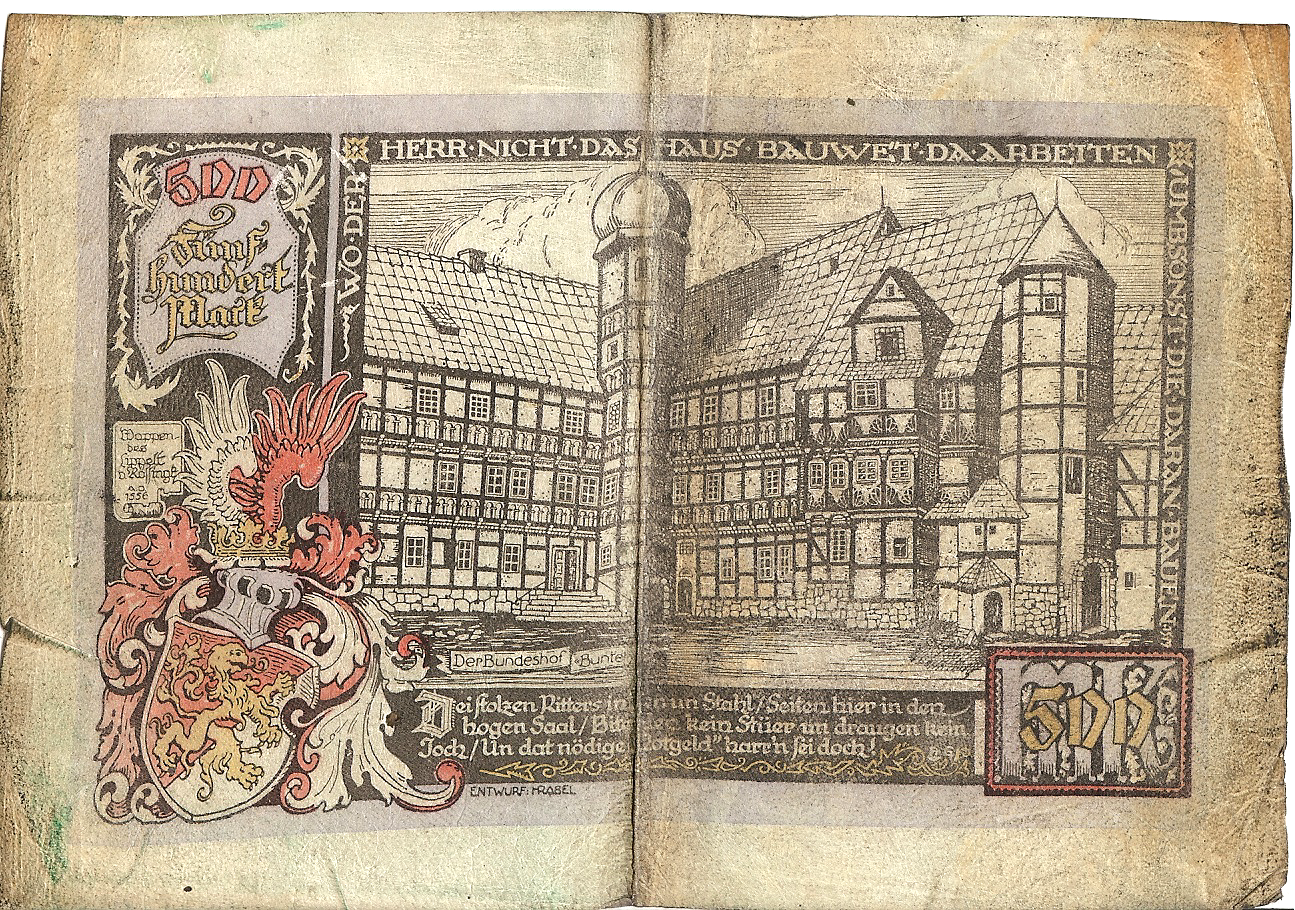 WO·DER·HERR·NICHT·DAS HAUS·BAUWET·DA·ARBEITEN
UMBSONST·DIE·DARAN·BAUEN
500
Fünf
hundert
Mark
Wappen-
des
1556
Der Bundeshof "Bunte
Dei stolzen Ritters in un Stahl/Seiten hier in den
hogen Saal/ kein Stüer un draugen kein
Joch/Un dat nödige „Notgeld" harr'n sei doch!
500
ENTWURF: